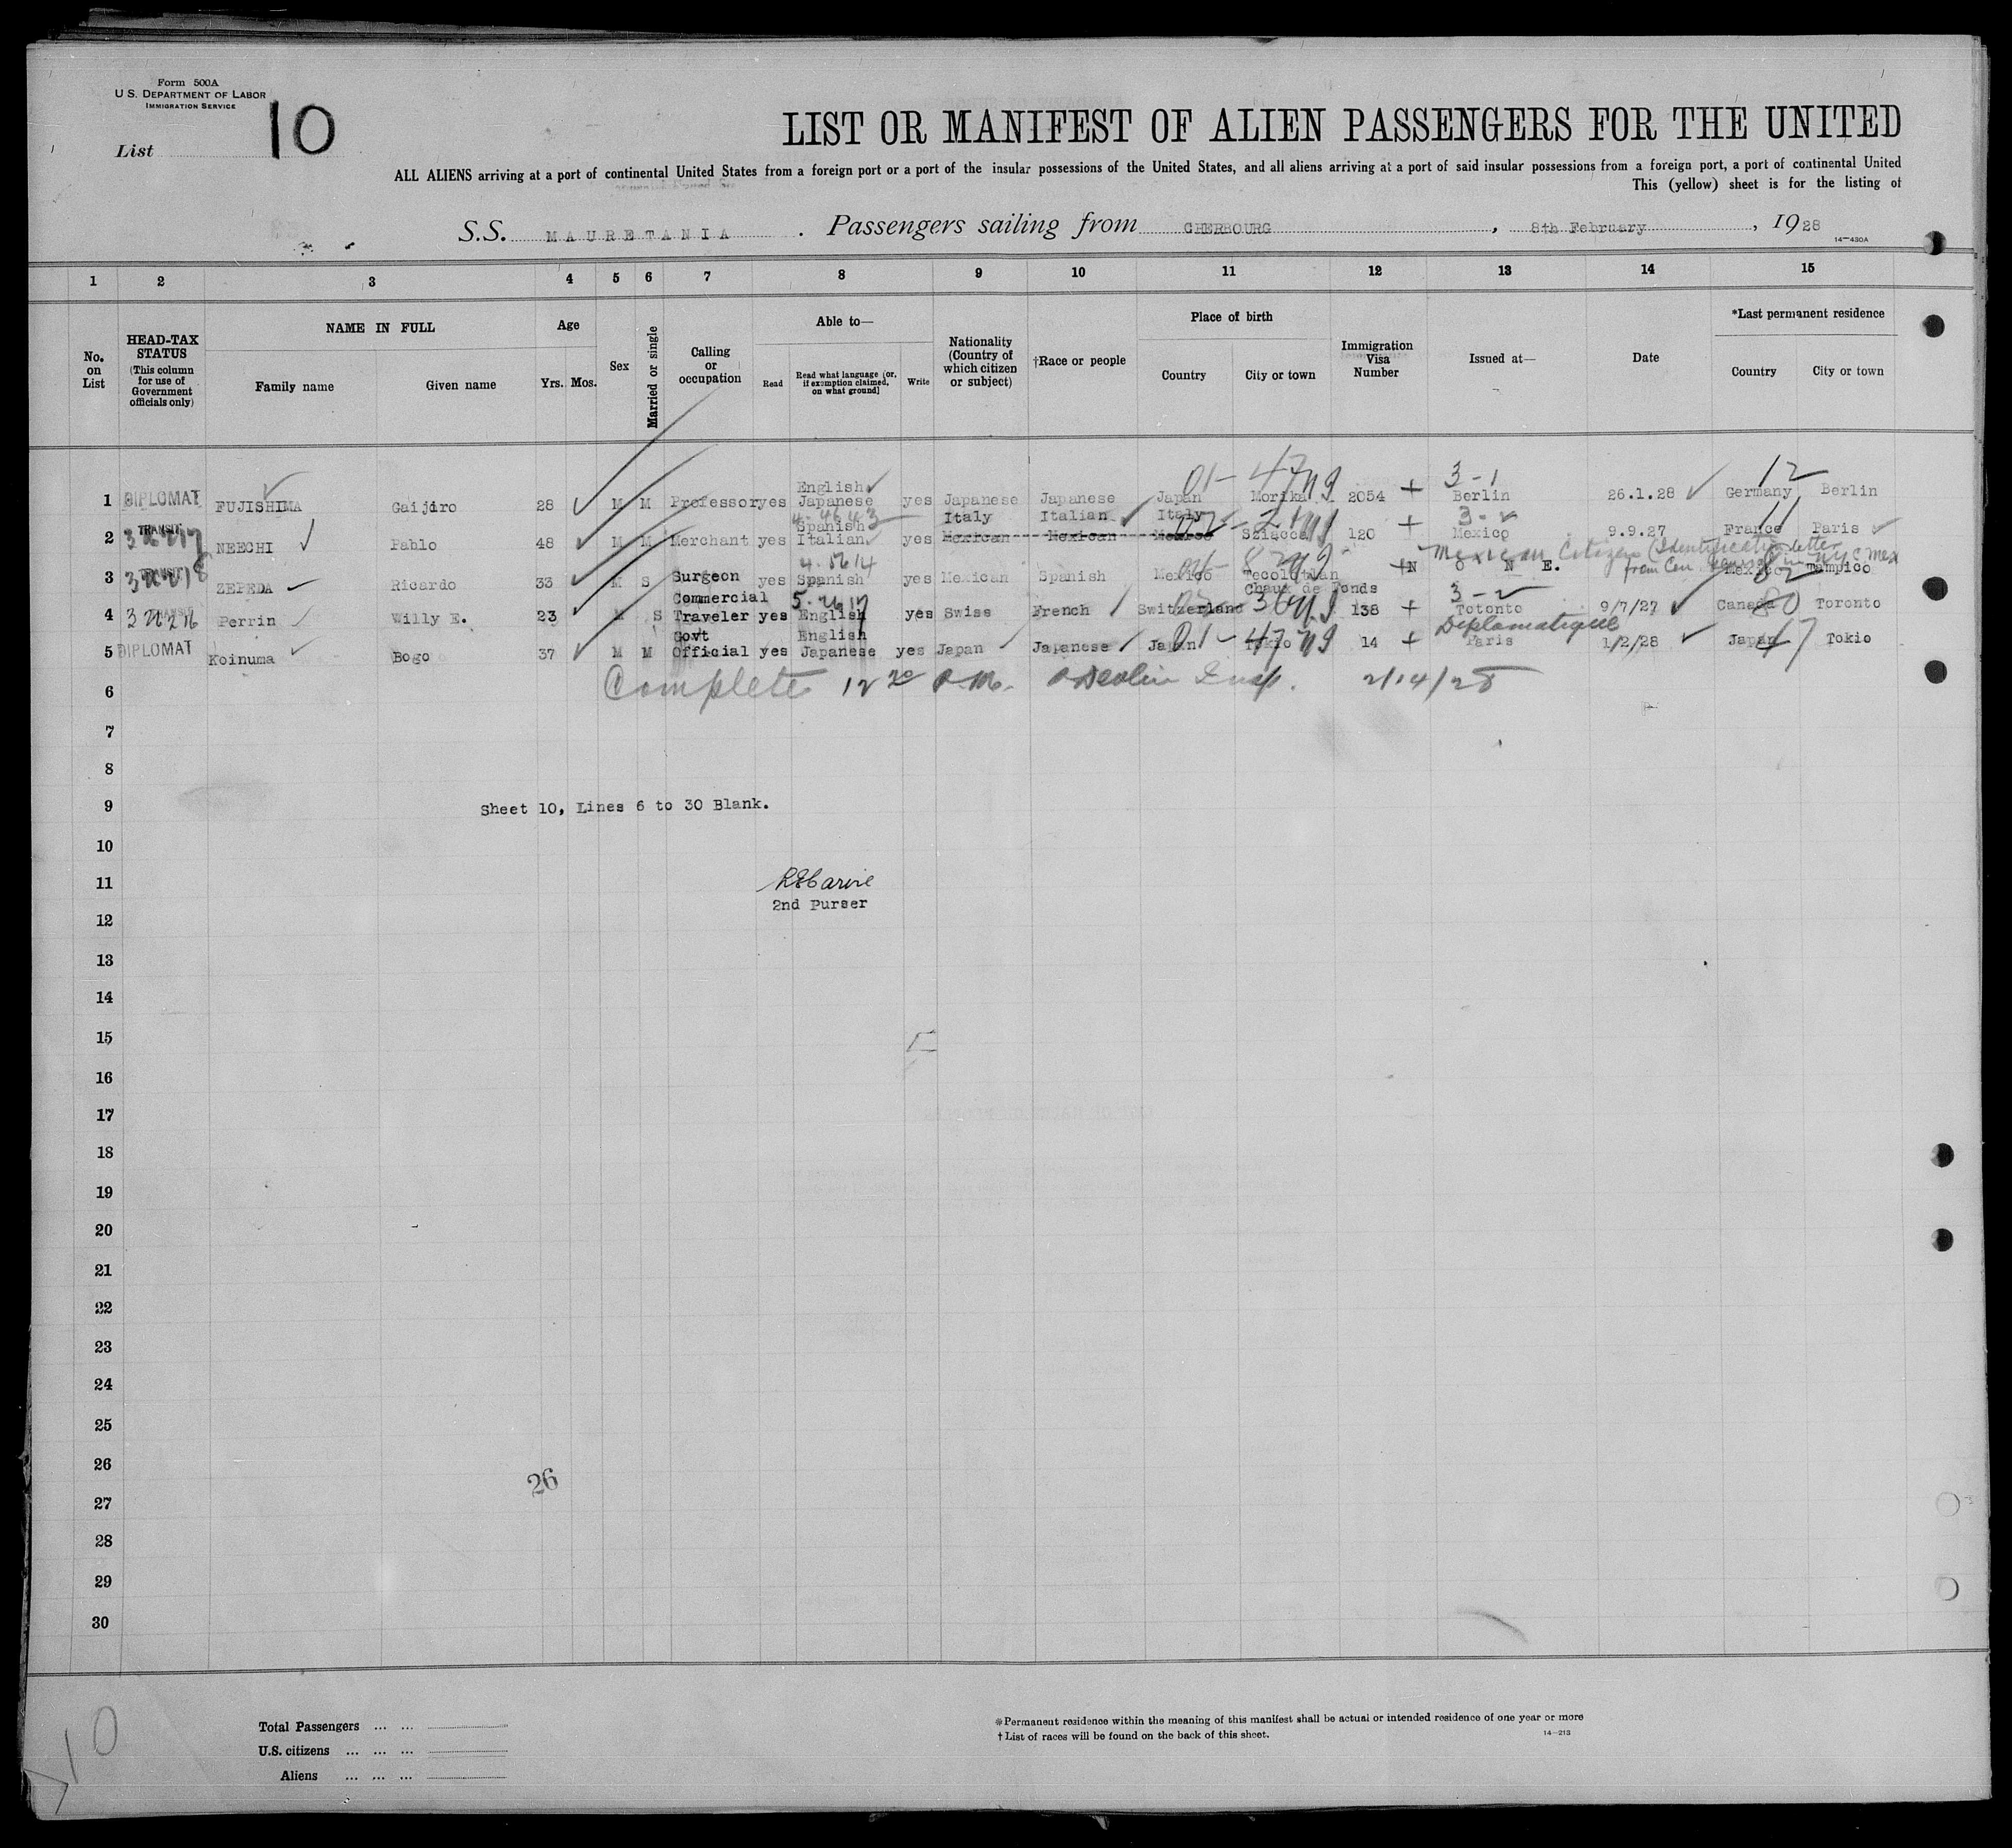 Form 500A
U. S. DEPARTMENT OF LABOR
IMMIGRATION SERVICE
List 10
LIST OR MANIFEST OF ALIEN PASSENGERS FOR THE UNITED
ALL ALIENS arriving at a port of continental United States from a foreign port or a port of the insular possessions of the United States, and all aliens arriving at a port of said insular possessions from a foreign port, a port of continental United
This (yellow) sheet is for the listing of
S.S. MAURETANIA. Passengers sailing from CHERBOURG, 8th February, 1928
14—430A
1 2 3 4 5 6 7 8 9 10 11 12 13 14 15
No. on List
HEAD-TAX STATUS (This column for use of Government officials only)
NAME IN FULL
Family name Given name
Age
Yrs. Mos.
Sex
Married or single
Calling or occupation
Able to—
Read Read what language [or, if exemption claimed, on what ground] Write
Nationality (Country of which citizen or subject)
†Race or people
Place of birth
Country City or town
Immigration Visa Number
Issued at—
Date
*Last permanent residence
Country City or town
01- 47 3-1 12
1 DIPLOMAT FUJISHIMA Gaijiro 28 M M Professor yes English Japanese yes Japanese Japanese Japan Morika 2054 + Berlin 26.1.28 Germany Berlin
2 TRANSIT NEECHI Pablo 48 M M Merchant yes Spanish Italian yes Italy Mexican Italian Mexican Italy Mexico Sziacca 120 + Mexico 9.9.27 France Paris
Mexican Citizen (Identification letter
3 ZEPEDA Ricardo 33 M S Surgeon yes Spanish yes Mexican Spanish Mexico Tecolutlan + N O N E. from Con Mexico Tampico
4 TRANSIT Perrin Willy E. 23 M S Commercial Traveler yes English yes Swiss French Switzerland Chaux de Fonds 138 + Totonto 9/7/27 Canada Toronto
Diplomatique
5 DIPLOMAT Koinuma Bogo 37 M M Govt Official yes English Japanese yes Japan Japanese Japan Tokio 14 + Paris 1/2/28 Japan Tokio
6 Complete 12 20 P.M. Insp. 2/14/28
7
8
9 Sheet 10, Lines 6 to 30 Blank.
10
11
12 2nd Purser
13
14
15
16
17
18
19
20
21
22
23
24
25
26
26
27
28
29
30
10
Total Passengers ... ...
U.S. citizens ... ... ...
Aliens ... ... ...
*Permanent residence within the meaning of this manifest shall be actual or intended residence of one year or more
†List of races will be found on the back of this sheet.
14—213